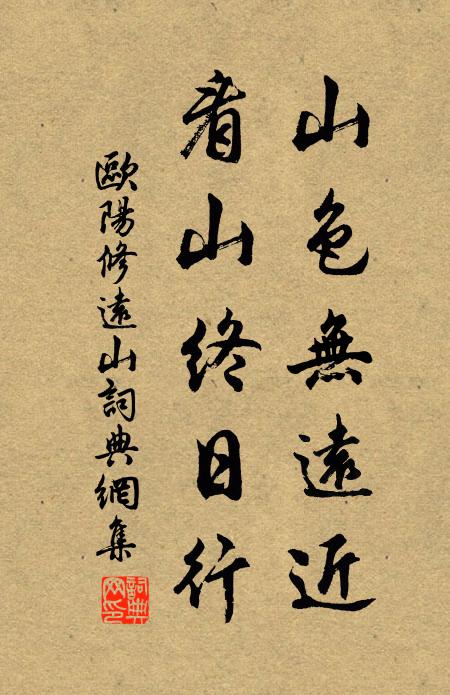 山色無遠近
看山終日行
歐陽修遠山詞典網集
詞典網印